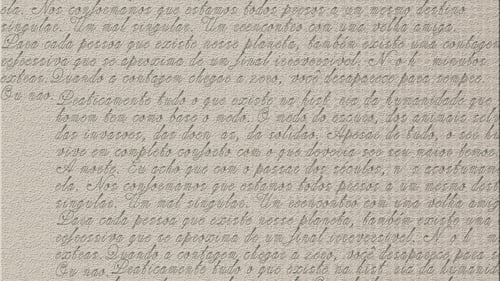 ela. Nos conformamos que estamos todos presos a um mesmo destino
singular. Um mal singular. Um reencontro com uma velha amiga.
Para cada pessoa que existe nesse planeta, também existe uma contagem
regressiva que se aproxima de um final irreversível. N o h minutos
extras. Quando a contagem chegar a zero, você desaparece para sempre.
Ou nao.
Praticamente tudo o que existe na hist ria da humanidade que
homem tem como base o medo. O medo do escuro, dos animais sel
das invasoes, das doen as, da solidao. Apesar de tudo, o ser h
vive em completo conforto com o que deveria ser seu maior temor
A morte. Eu acho que com o passar dos séculos, n s acostumam
ela. Nos conformamos que estamos todos presos a um mesmo dest
singular. Um mal singular. Um reencontro com uma velha amig
Para cada pessoa que existe nesse planeta, também existe uma
regressiva que se aproxima de um final irreversível. N o h m
extras. Quando a contagem chegar a zero, você desaparece para s
Ou nao. Praticamente tudo o que existe na hist ria da humanid